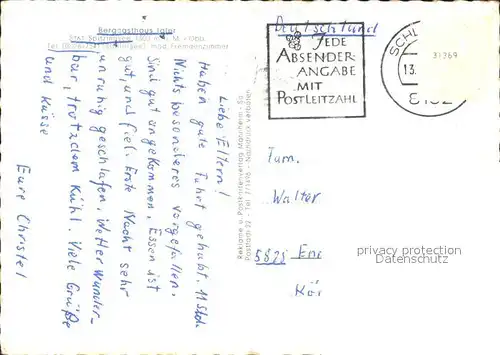 Berggasthaus Igler
Deutschland
JEDE
ABSENDER-
ANGABE
MIT
POSTLEITZAHL
SCHL
13.
8162
31369
Liebe Eltern!
Haben gute Fahrt gehabt. 11 Std.
Nichts besonderes vorgefallen.
Sind gut angekommen. Essen ist
gut, und fiel. Erste Nacht sehr
unruhig geschlafen. Wetter wunder-
bar, trotzdem kühl. Viele Grüße
und Küsse
Eure Christel
Fam.
Walter
5828 Enn
Kör
privacy protection
Datenschutz